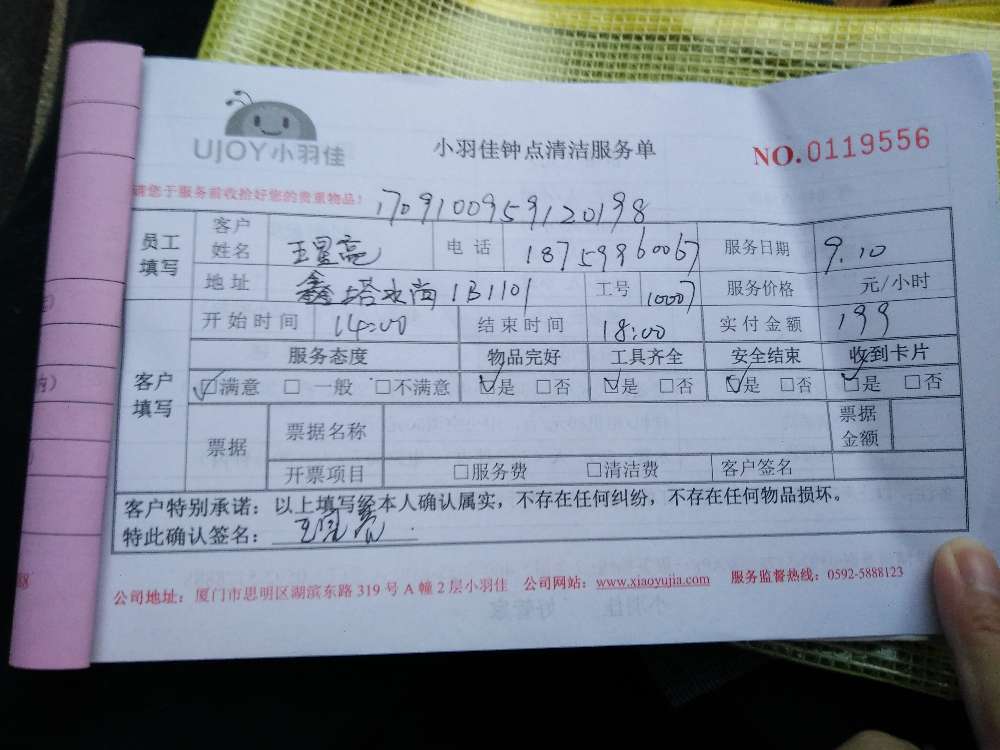 UJOY小羽佳
小羽佳钟点清洁服务单
NO.0119556
请您于服务前收拾好您的贵重物品！
1709100959120198
员工填写 客户姓名 王星亮 电话 18759960067 服务日期 9.10
地址 鑫塔水尚1B1101 工号 10007 服务价格 元/小时
开始时间 14:00 结束时间 18:00 实付金额 199
客户填写 服务态度 物品完好 工具齐全 安全结束 收到卡片
☑满意 □一般 □不满意 ☑是 □否 ☑是 □否 ☑是 □否 ☑是 □否
票据 票据名称 票据金额
开票项目 □服务费 □清洁费 客户签名
客户特别承诺：以上填写经本人确认属实，不存在任何纠纷，不存在任何物品损坏。
特此确认签名：
公司地址：厦门市思明区湖滨东路319号A幢2层小羽佳 公司网站：www.xiaoyujia.com 服务监督热线：0592-5888123